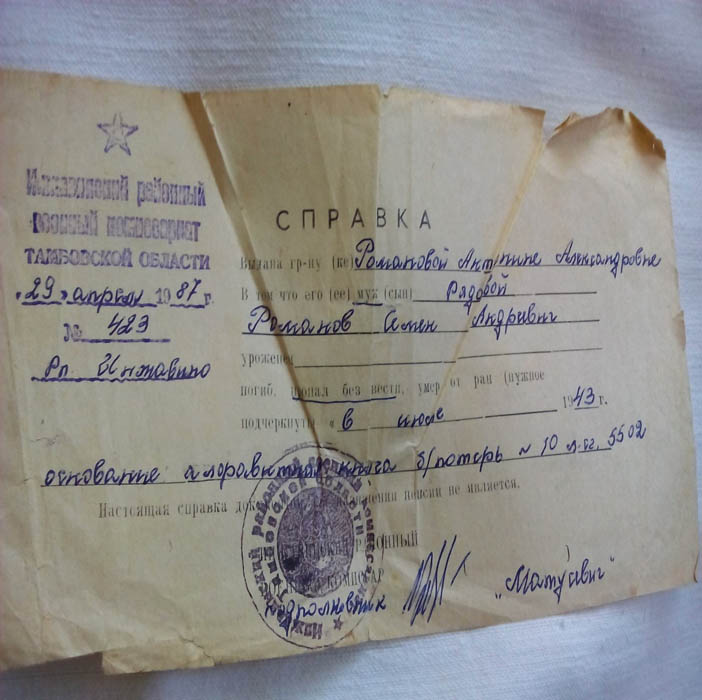 Инжавинский районный
военный комиссариат
ТАМБОВСКОЙ ОБЛАСТИ
"29" апреля 1987 г.
№ 423
Рп. Инжавино
СПРАВКА
Выдана гр-ну (ке) Романовой Антнине Александровне
В том что его (ее) муж (сын) Рядовой
Романов Семен Андривич
уроженец
погиб, пропал без вести, умер от ран (нужное
подчеркнуть) "в июле 1943 г.
основание алфавитная книга б/потерь № 10 л. 5502
Настоящая справка для пенсии не является.
РАЙОННЫЙ
КОМИССАР
подполковник "Матусевич"